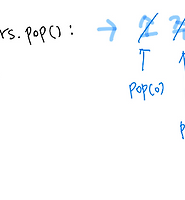 rs.pop() : → 2
pop(0)